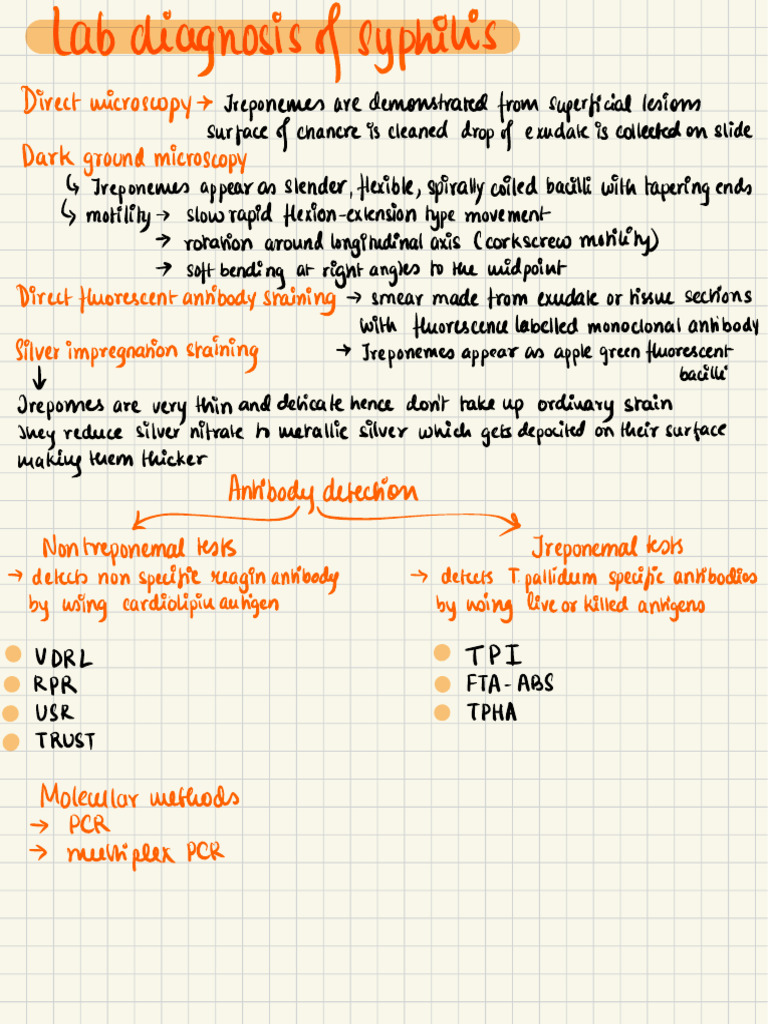 Lab diagnosis of syphilis
Direct microscopy → Treponemes are demonstrated from superficial lesions
surface of chancre is cleaned drop of exudate is collected on slide
Dark ground microscopy
↳ Treponemes appear as slender, flexible, spirally coiled bacilli with tapering ends
↳ motility → slow rapid flexion-extension type movement
→ rotation around longitudinal axis (corkscrew motility)
→ soft bending at right angles to the midpoint
Direct fluorescent antibody staining → smear made from exudate or tissue sections
with fluorescence labelled monoclonal antibody
Silver impregnation staining → Treponemes appear as apple green fluorescent
bacilli
↓
Trepomnes are very thin and delicate hence don't take up ordinary stain
They reduce silver nitrate to metallic silver which gets deposited on their surface
making them thicker
Antibody detection
Nontreponemal tests Treponemal tests
→ detects non specific reagin antibody → detects T. pallidum specific antibodies
by using cardiolipin antigen by using live or killed antigens
VDRL TPI
RPR FTA-ABS
USR TPHA
TRUST
Molecular methods
→ PCR
→ multiplex PCR